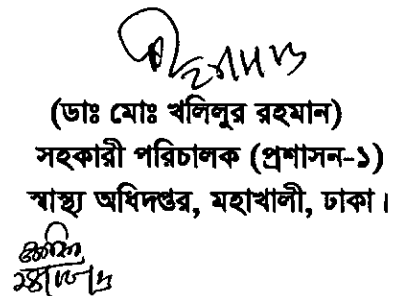 (ডাঃ মোঃ খলিলুর রহমান)
সহকারী পরিচালক (প্রশাসন-১)
স্বাস্থ্য অধিদপ্তর, মহাখালী, ঢাকা।